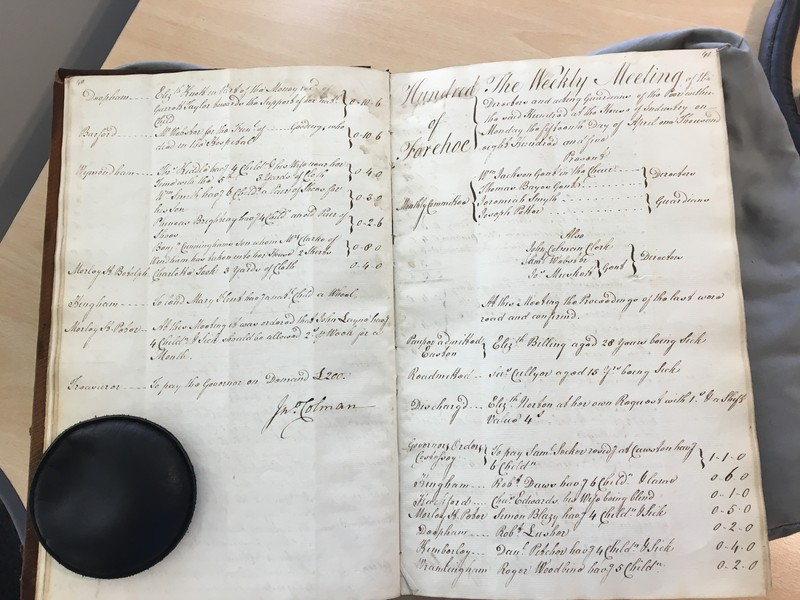 40
Deopham ---- Eliz.th Knott in Part of the Money rec.d
Garrott Taylor towards the Support of her Inf.t
Child 0-10-6
Barford --- M.r Webster for the Fun.l of ---- Gooding, who
died in the Hospital 0-10-6
Wymondham --- Tho.s Kiddle hav.g 4 Child.n & his Wife near her
Time with the 5.th 3 Yards of Cloth 0-4-0
W.m Smith hav.g 6 Child.n a Pair of Shoes for
his Son 0-3-0
Brighting hav.g 4 Child.n an old Pair of
Shoes 0-2-6
Benj.n Cunningham's Son whom M.r Clarke of
Windham has taken into her House 2 Shirts 0-8-0
Morley S.t Botolph Charlotte Took 3 Yards of Cloth 0-4-0
Hingham ---- To lend Mary Flint hav.g a nat.l Child a Wheel.
Morley S.t Peter --- At this Meeting it was ordered that John Layno hav.g
4 Child.n & Sick should be allowed 2.s W Week for a
Month.
Treasurer --- To pay the Governor on Demand £200.
Jn.o Colman
41
Hundred of Forehoe
The Weekly Meeting of the
Directors and acting Guardians of the Poor within
the said Hundred at the House of Industry on
Monday the fifteenth Day of April one Thousand
eight Hundred and five
Present
Monthly Committee
W.m Jackson Gent in the Chair
Thomas Bayon Gent
Directors
Jeremiah Smyth
Joseph Potter
Guardians
Also
John Colman Clerk
Sam.l Webster
Jo.s Muskett
Gent
Directors
At this Meeting the Proceedings of the last were
read and confirmd.
Pauper admitted
Easton
Eliz.th Billing aged 28 Years being Sick
Readmitted --- Cullyer aged 15 Y.rs being Sick
Dischargd --- Eliz.th Norton at her own Request with 1.s & a Shift
Value 4.s
Governors Orders
Costessey
To pay Sam.l Secker resid.g at Cawston hav.g
6 Child.n 1-1-0
Hingham --- Rob.t Daws hav.g 6 Child.n & lame 0-6-0
Hackford --- Cha.s Edwards his Wife being blind 0-1-0
Morley S.t Peter Simon Blazy hav.g 4 Child.n & Sick 0-5-0
Deopham --- Rob.t Lusher 0-2-0
Kimberley --- Dan.l Potcher hav.g 4 Child.n & Sick 0-4-0
Wramlingham Roger Woodbine hav.g 5 Child.n 0-2-0